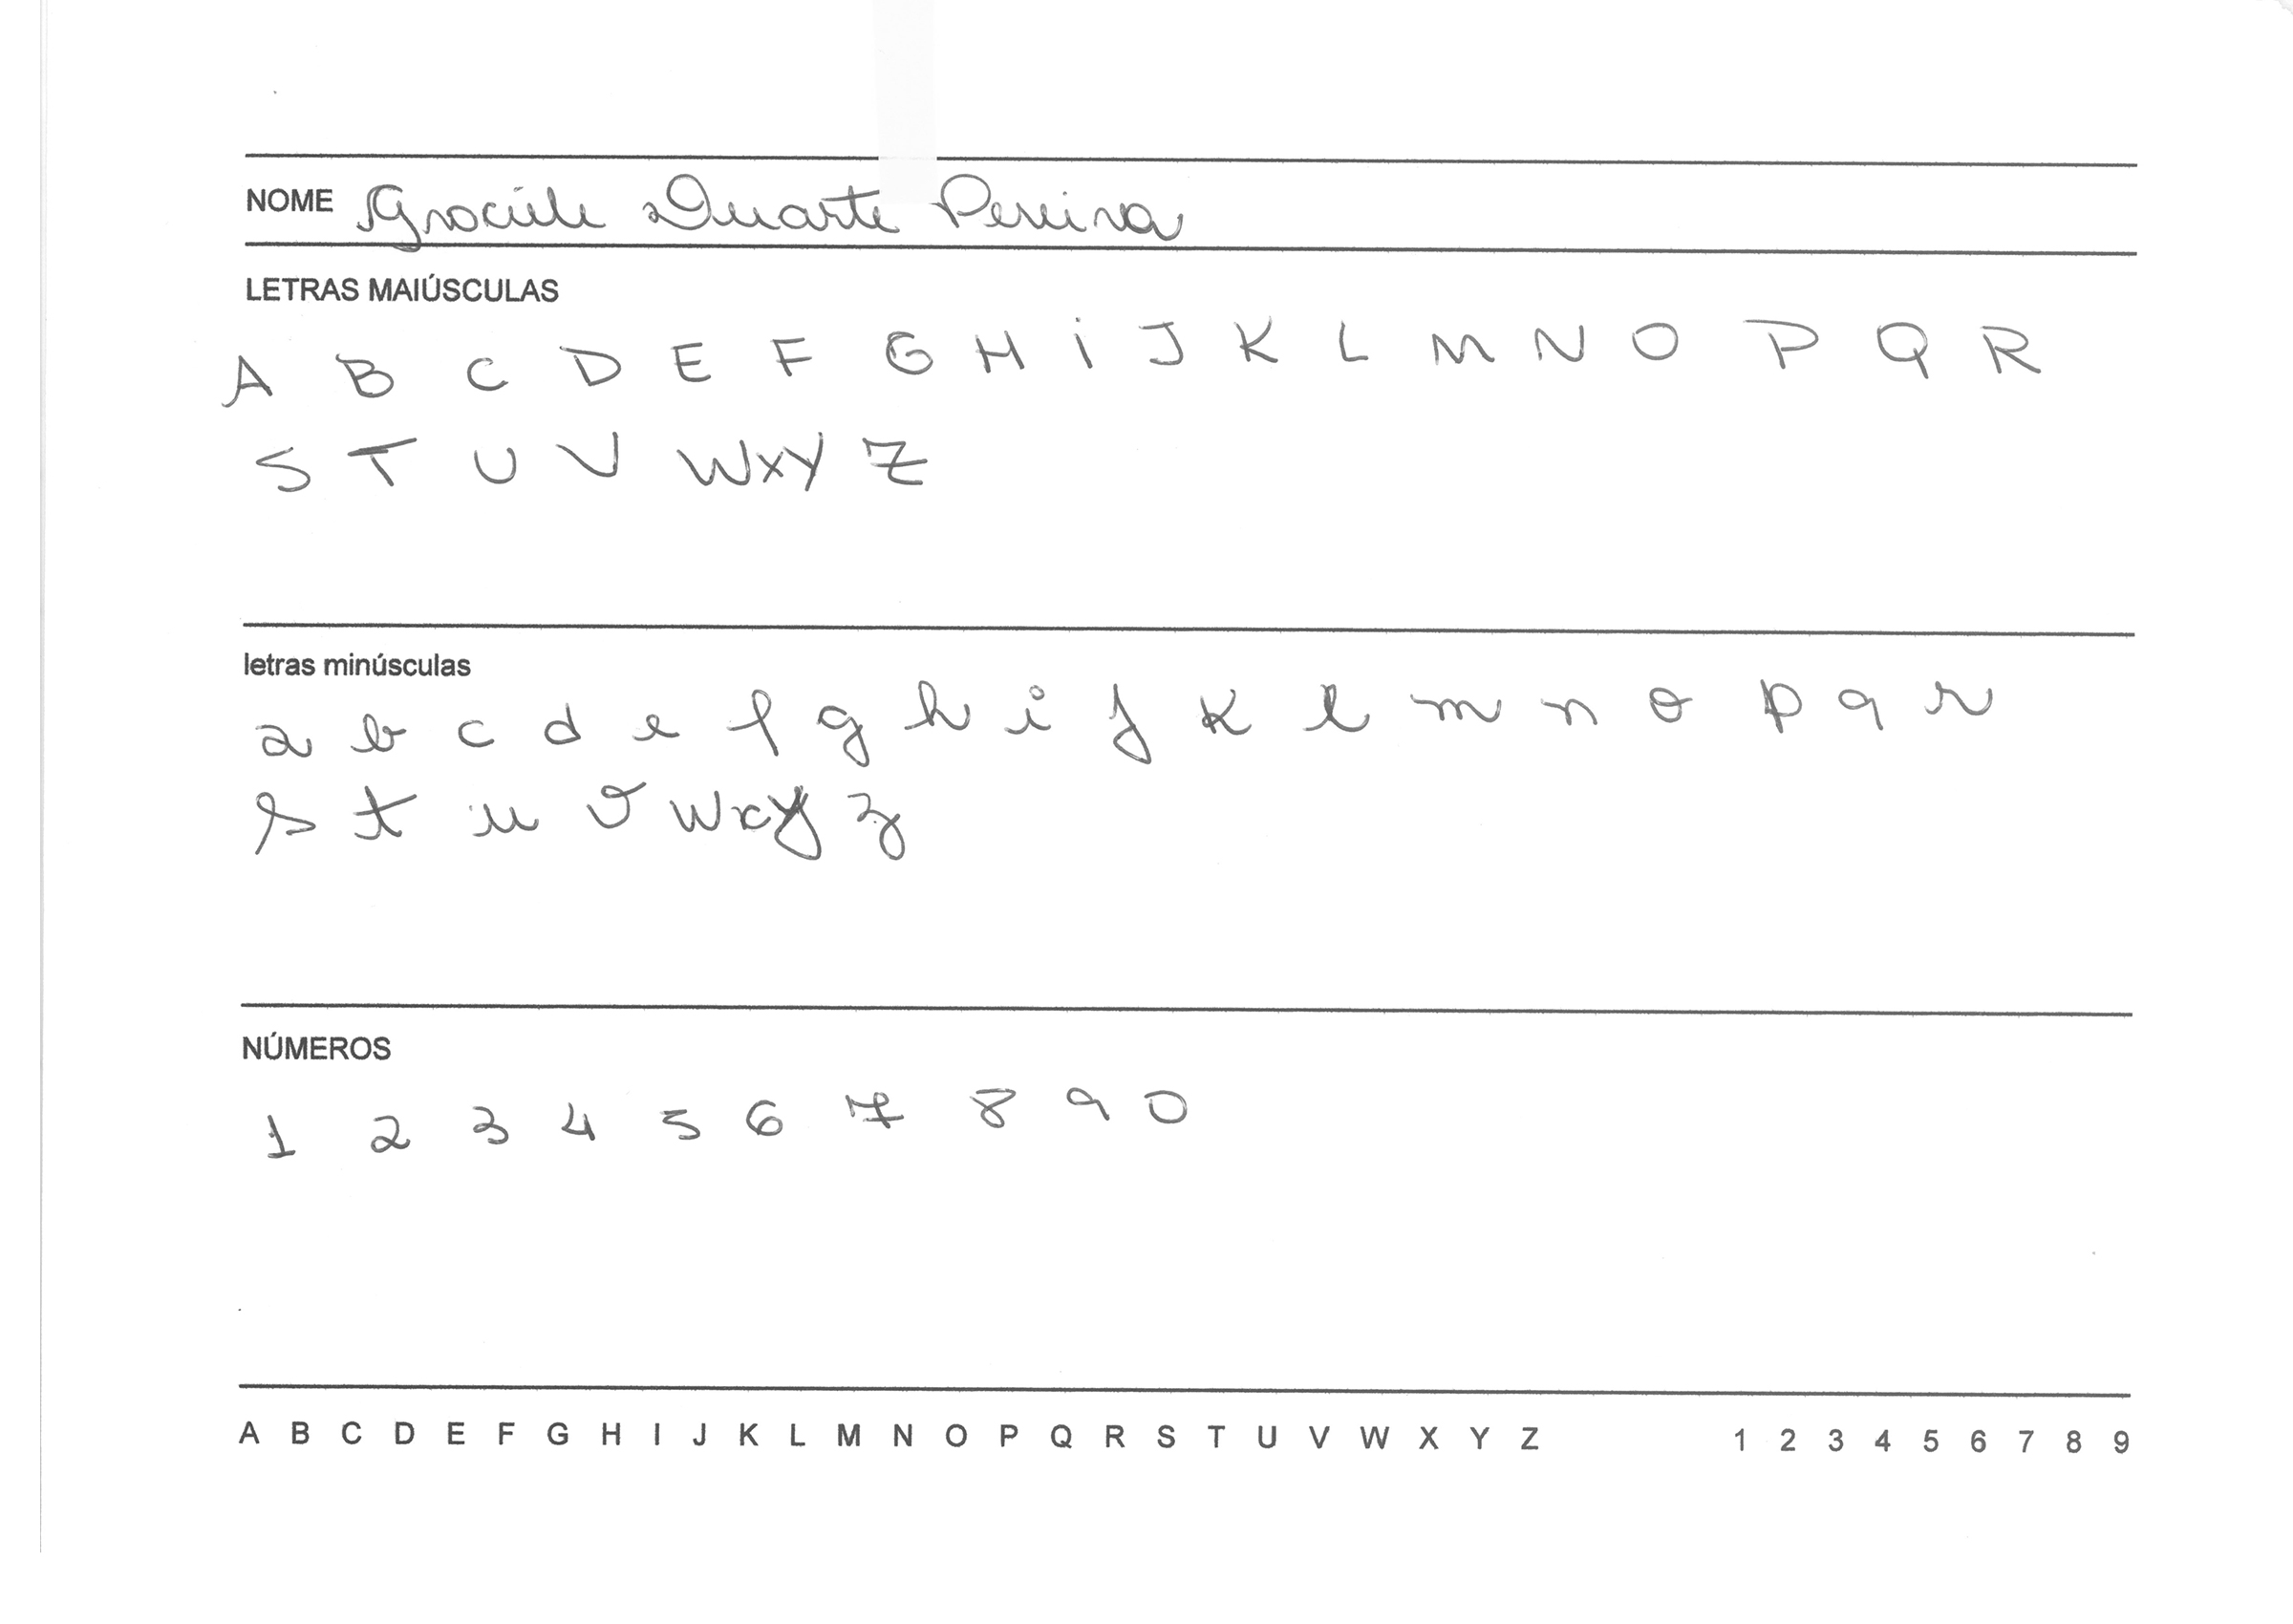 NOME Graciele Duarte Pereira
LETRAS MAIÚSCULAS
A B C D E F G H i J K L M N O P Q R
S T U V W X Y Z
letras minúsculas
a b c d e f g h i j k l m n o p q r
s t u v w x y z
NÚMEROS
1 2 3 4 5 6 7 8 9 0
A B C D E F G H I J K L M N O P Q R S T U V W X Y Z 1 2 3 4 5 6 7 8 9